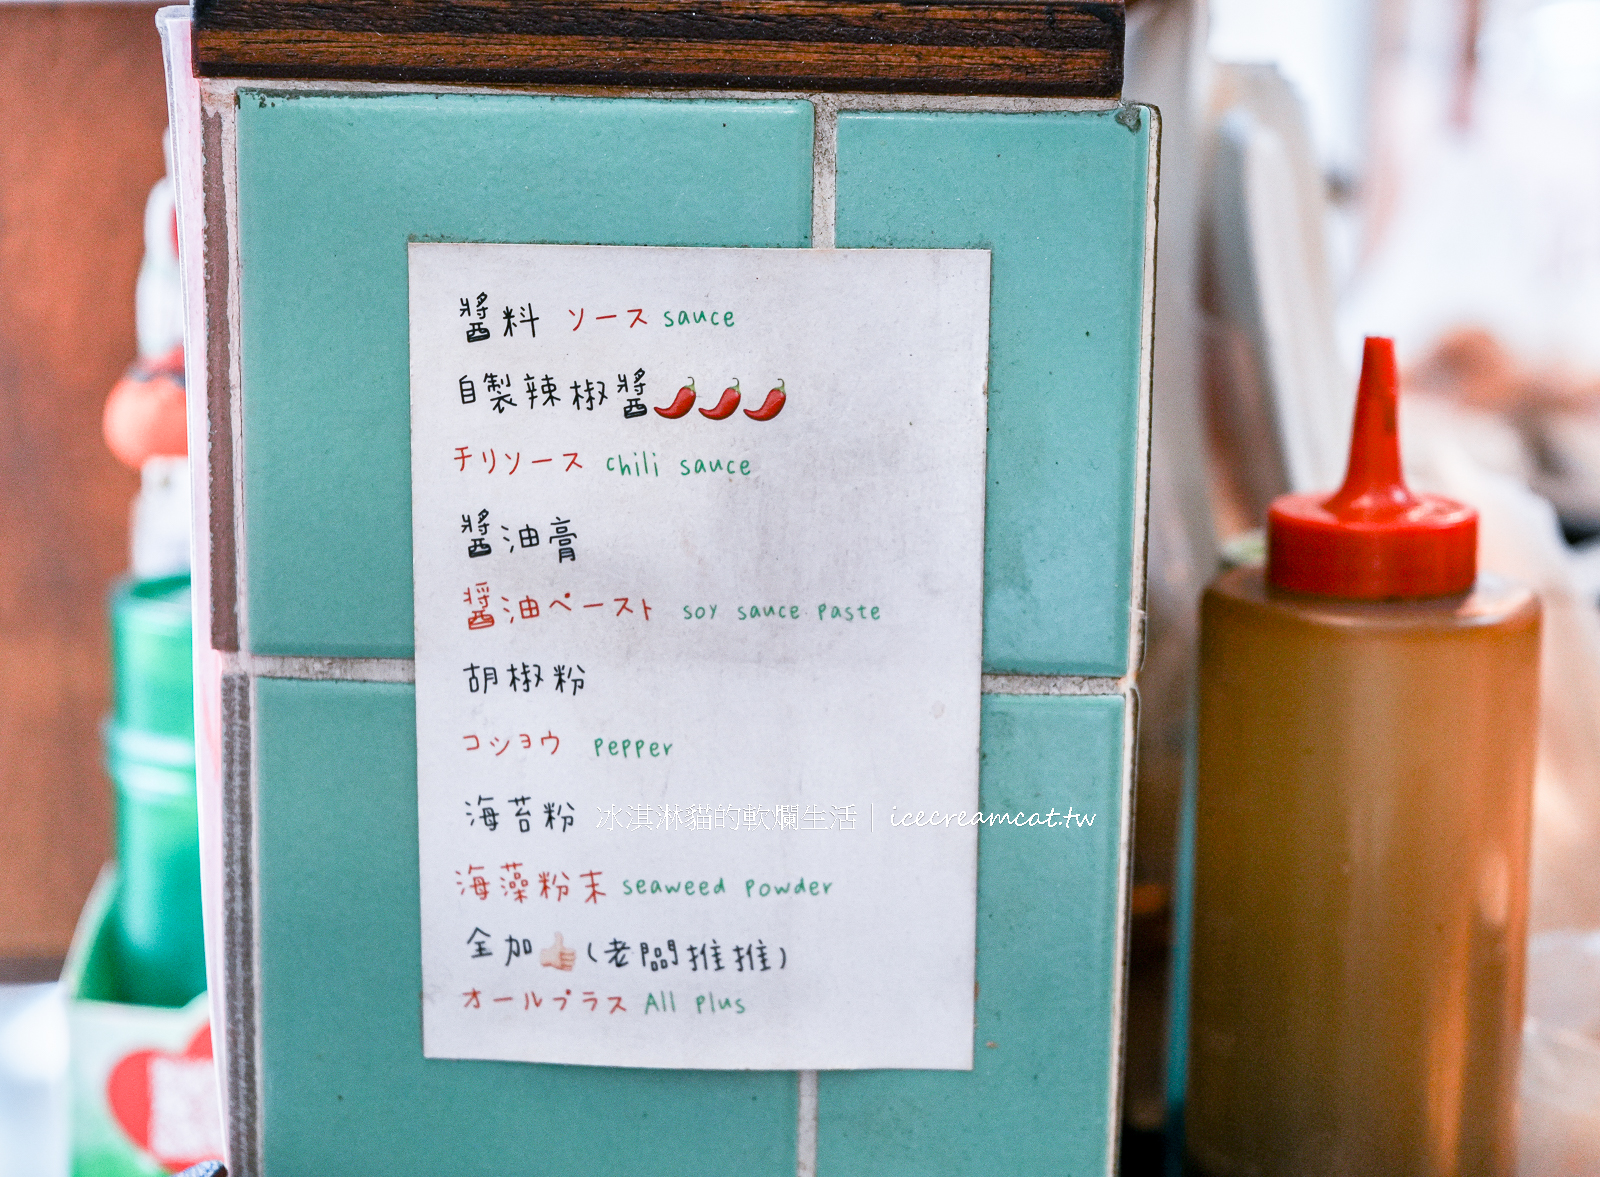 醬料 ソース sauce
自製辣椒醬🌶🌶🌶
チリソース chili sauce
醬油膏
醤油ペースト soy sauce paste
胡椒粉
コショウ pepper
海苔粉
冰淇淋貓的軟爛生活｜icecreamcat.tw
海藻粉末 seaweed powder
全加👍🏻(老闆推推)
オールプラス All plus